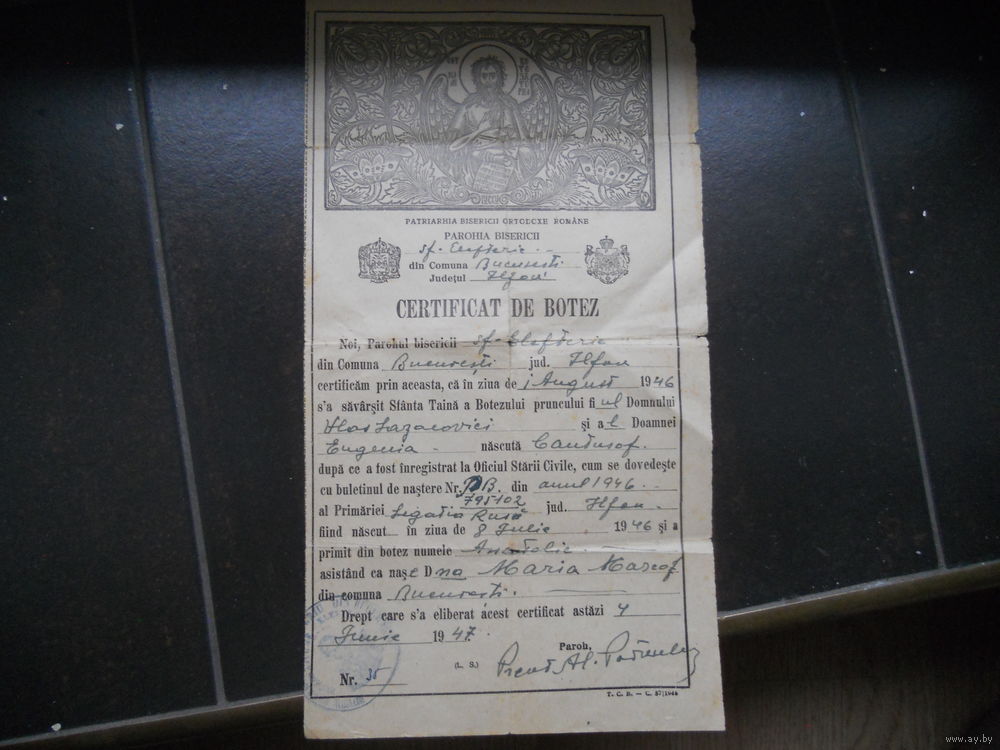 PATRIARHIA BISERICII ORTODOXE ROMÂNE
PAROHIA BISERICII
sf. Elefterie
din Comuna Bucuresti
Județul Ilfov
CERTIFICAT DE BOTEZ
Noi, Parohul bisericii sf. Elefterie
din Comuna București jud. Ilfov
certificăm prin aceasta, că în ziua de 1 August 1946
s'a săvârșit Sfânta Taină a Botezului pruncului fiul Domnului
Vlas Lazacovici și al Doamnei
Eugenia născută
după ce a fost înregistrat la Oficiul Stării Civile, cum se dovedește
cu buletinul de naștere Nr. P.B. din anul 1946
795102
al Primăriei Legatia Rusă jud. Ilfov
fiind născut în ziua de 8 Iulie 1946 și a
primit din botez numele Anatolie
asistând ca nașe Dna Maria
din comuna București.
Drept care s'a eliberat acest certificat astăzi 4
Iunie 1947.
Paroh,
(L. S.) Preot Al.
Nr. 35
T. C. B. — C. 57/1946
www.ay.by